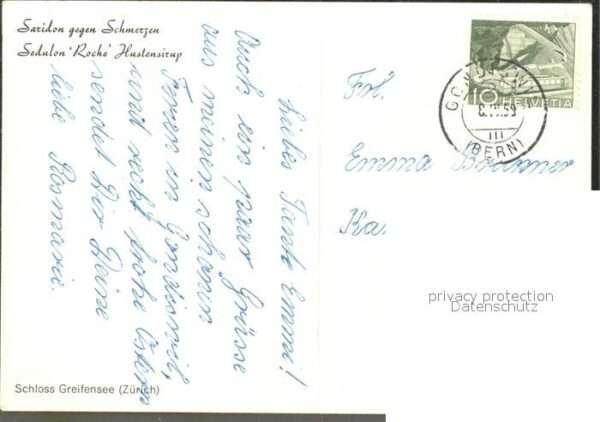 Saridon gegen Schmerzen
Sedulon 'Roche' Hustensirup
Liebes Tante Emmi!
Auch ein paar Grüsse
aus meinen schönen
Ferien in
und recht frohe Ostern
sendet Dir Deine
liebe Rosmarie.
Schloss Greifensee (Zürich)
10 HELVETIA
III
(BERN)
Frl.
Emma
Ka.
privacy protection
Datenschutz